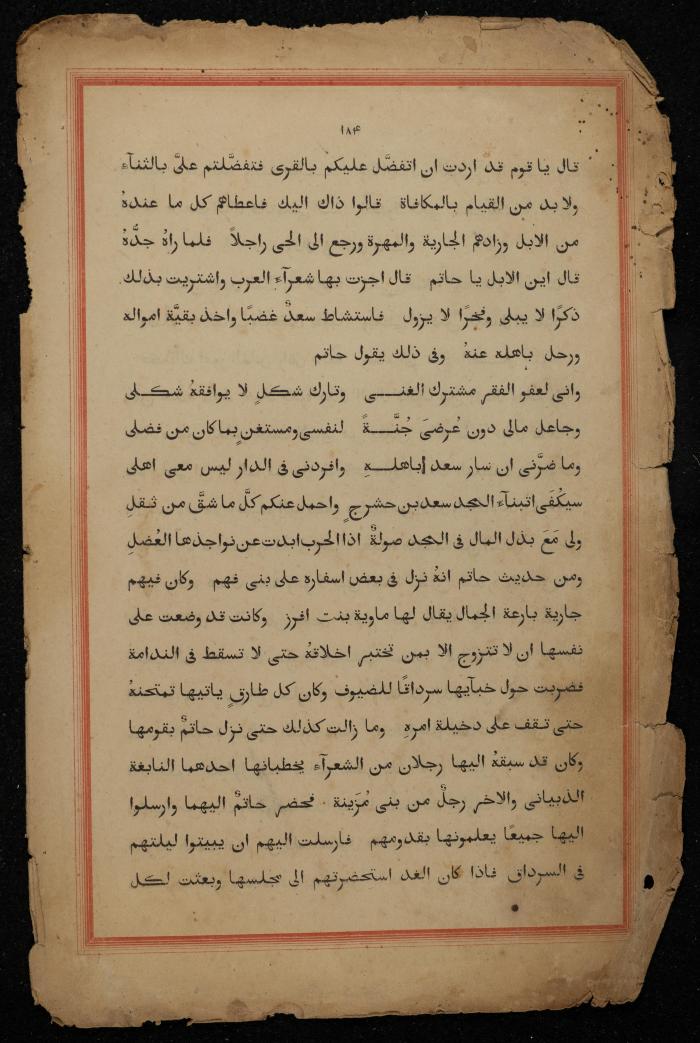 ١٨۴
قال يا قوم قد اردت ان اتفضَّل عليكم بالقرى فتفضَّلتم علىَّ بالثنآء
ولا بد من القيام بالمكافاة قالوا ذاك اليك فاعطاهم كل ما عندهُ
من الابل وزادهم الجارية والمهرة ورجع الى الحى راجلاً فلما راهُ جدُّهُ
قال اين الابل يا حاتم قال اجزت بها شعرآء العرب واشتريت بذلك
ذكرًا لا يبلى وفخرًا لا يزول فاستشاط سعدٌ غضبًا واخذ بقيَّة امواله
ورحل باهله عنهُ وفى ذلك يقول حاتم
وانى لعفو الفقر مشترك الغنى وتارك شكلٍ لا يوافقهُ شكلى
وجاعل مالى دون عُرضىَ جُنَّةً لنفسى ومستغنٍ بما كان من فضلى
وما ضرَّنى ان سار سعد باهلهِ وافردنى فى الدار ليس معى اهلى
سيكفى ابتنآء المجد سعد بن حشرجٍ واحمل عنكم كلَّ ما شقَّ من ثقلِ
ولى مَعَ بذل المال فى المجد صولةٌ اذا الحرب ابدت عن نواجذها العُضلِ
ومن حديث حاتم انهُ نزل فى بعض اسفاره على بنى فهم وكان فيهم
جارية بارعة الجمال يقال لها ماوية بنت افرز وكانت قد وضعت على
نفسها ان لا تتزوج الا بمن تختبر اخلاقهُ حتى لا تسقط فى الندامة
فضربت حول خبآيها سرداقًا للضيوف وكان كل طارقٍ ياتيها تمتحنهُ
حتى تقف على دخيلة امرهِ وما زالت كذلك حتى نزل حاتمٌ بقومها
وكان قد سبقهُ اليها رجلان من الشعرآء يخطبانها احدهما النابغة
الذبيانى والاخر رجلٌ من بنى مُزَينة فحضر حاتمٌ اليهما وارسلوا
اليها جميعًا يعلمونها بقدومهم فارسلت اليهم ان يبيتوا ليلتهم
فى السرداق فاذا كان الغد استحضرتهم الى مجلسها وبعثت لكل